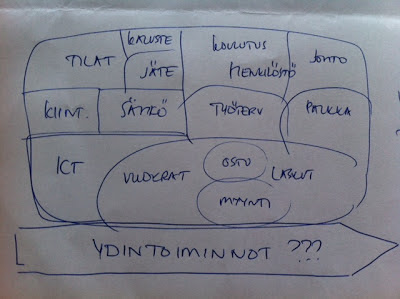 KALUSTE
KOULUTUS
TILAT
JÄTE
HENKILÖSTÖ
JOHTO
KIINT.
SÄHKÖ
TYÖTERV
PALKKA
ICT
VUOKRAT
OSTO
LASKUT
MYYNTI
YDINTOIMINNOT ???